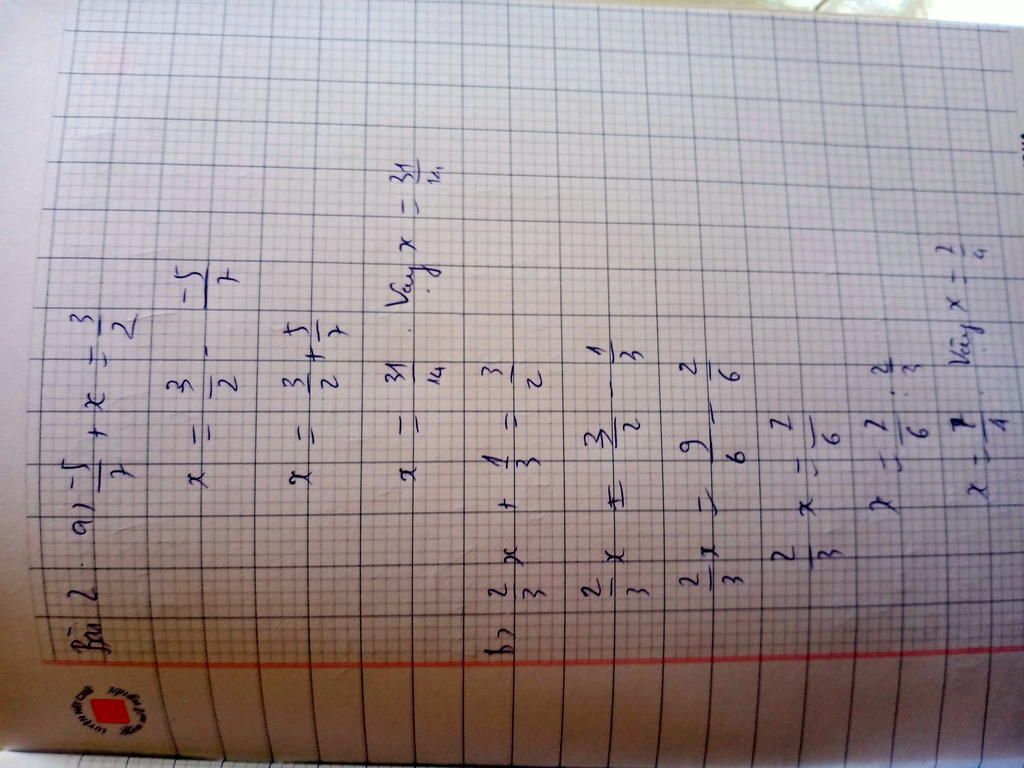 Bài 2. a) -5/7 + x = 3/2
x = 3/2 - -5/7
x = 3/2 + 5/7
x = 31/14. Vậy x = 31/14
b) 2/3 x + 1/3 = 3/2
2/3 x = 3/2 - 1/3
2/3 x = 9/6 - 2/6
2/3 x = 7/6
x = 7/6 : 2/3
x = 7/4. Vậy x = 7/4